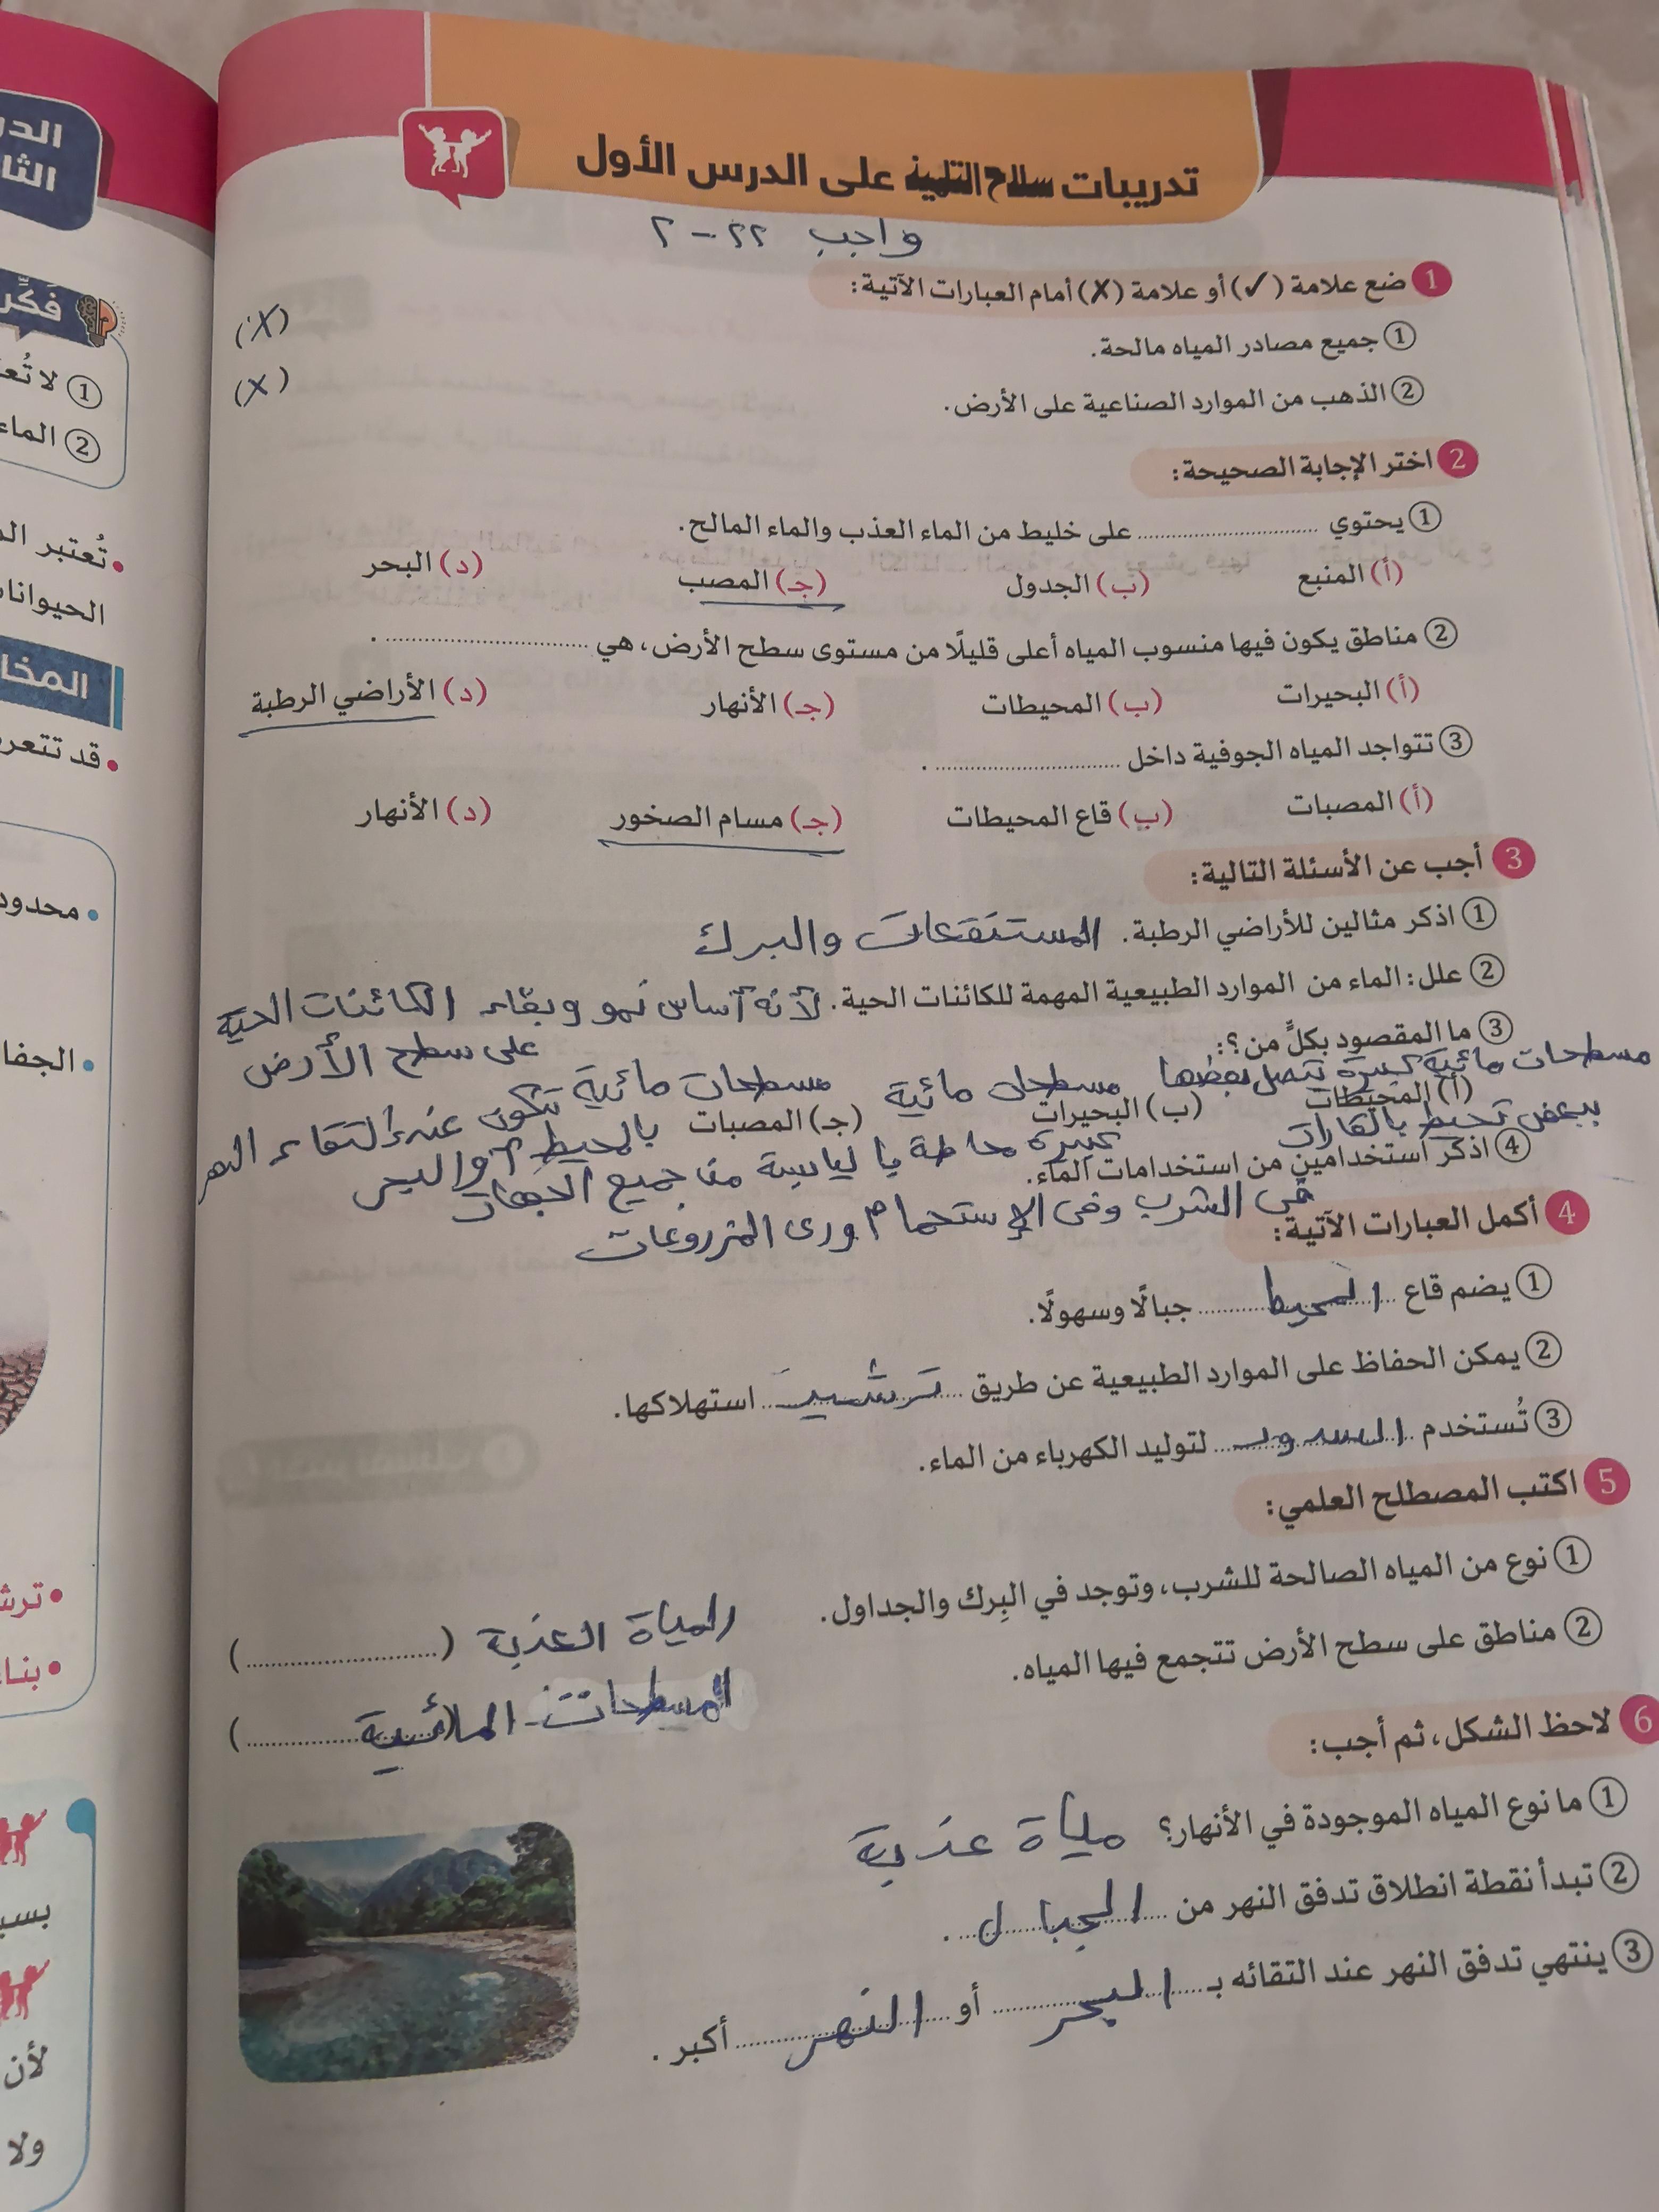 تدريبات سلاح التلميذ على الدرس الأول
واجب ٢٢-٢
1 ضع علامة (✓) أو علامة (✗) أمام العبارات الآتية:
① جميع مصادر المياه مالحة. (X)
② الذهب من الموارد الصناعية على الأرض. (X)
2 اختر الإجابة الصحيحة:
① يحتوي .................... على خليط من الماء العذب والماء المالح.
(أ) المنبع (ب) الجدول (جـ) المصب (د) البحر
② مناطق يكون فيها منسوب المياه أعلى قليلًا من مستوى سطح الأرض، هي .................... .
(أ) البحيرات (ب) المحيطات (جـ) الأنهار (د) الأراضي الرطبة
③ تتواجد المياه الجوفية داخل .................... .
(أ) المصبات (ب) قاع المحيطات (جـ) مسام الصخور (د) الأنهار
3 أجب عن الأسئلة التالية:
① اذكر مثالين للأراضي الرطبة. المستنقعات والبرك
② علل: الماء من الموارد الطبيعية المهمة للكائنات الحية. لأنه أساس نمو وبقاء الكائنات الحية
على سطح الأرض
③ ما المقصود بكلٍّ من؟:
مسطحات مائية كبيرة تتصل بعضها مسطحات مائية مسطحات مائية تتكون عند التقاء النهر
(أ) المحيطات (ب) البحيرات (جـ) المصبات
ببعض تحيط بالقارات كبيرة محاطة باليابسة من جميع الجهات بالمحيط والبحر
④ اذكر استخدامين من استخدامات الماء.
في الشرب وفى الإستحمام ورى المزروعات
4 أكمل العبارات الآتية:
① يضم قاع المحيط جبالًا وسهولًا.
② يمكن الحفاظ على الموارد الطبيعية عن طريق ترشيد استهلاكها.
③ تُستخدم السدود لتوليد الكهرباء من الماء.
5 اكتب المصطلح العلمي:
① نوع من المياه الصالحة للشرب، وتوجد في البِرك والجداول.
المياة العذبة (....................)
② مناطق على سطح الأرض تتجمع فيها المياه.
المسطحات المائية (....................)
6 لاحظ الشكل، ثم أجب:
① ما نوع المياه الموجودة في الأنهار؟ مياة عذبة
② تبدأ نقطة انطلاق تدفق النهر من الجبال .
③ ينتهي تدفق النهر عند التقائه بـ البحر أو النهر أكبر .
الثا
فكّر
① لا تُعـ
② الماء
• تُعتبر
الحيوانا
المخا
• قد تتعر
• محدود
• الجفا
• ترش
• بنا
بسـ
لأن
ولا